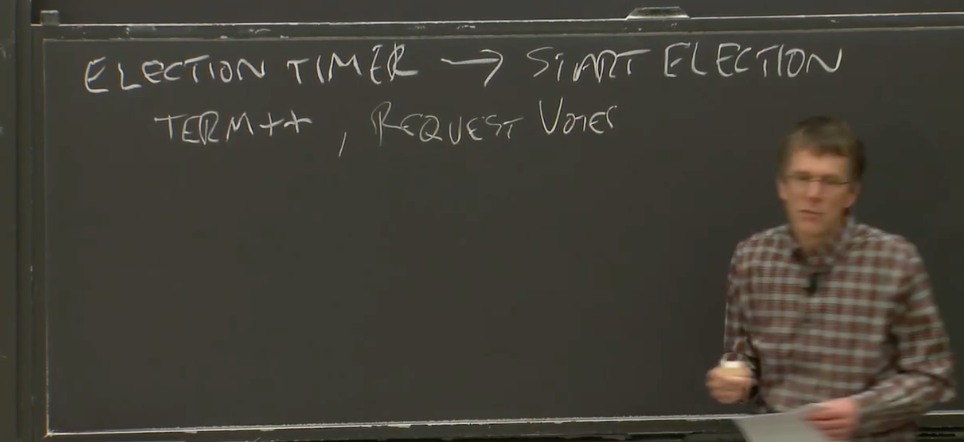 ELECTION TIMER → START ELECTION
TERM++, REQUEST VOTES